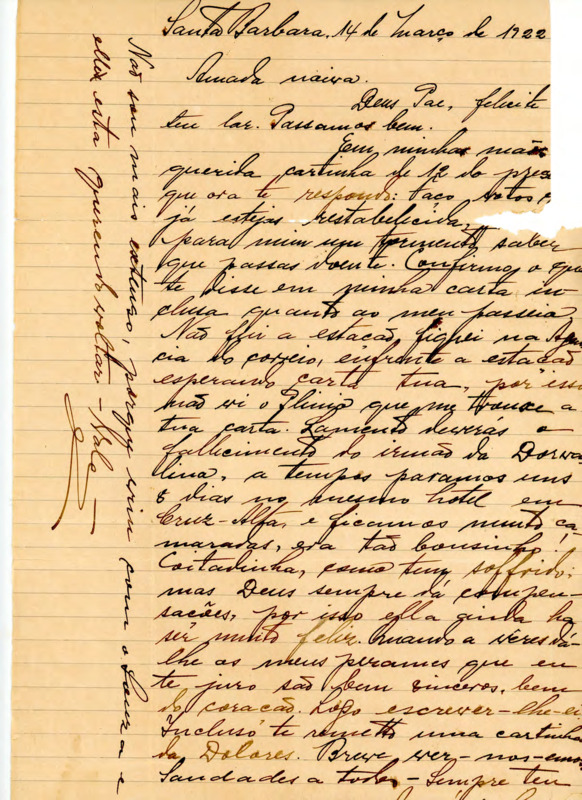 Santa Barbara, 14 de Março de 1922
Amada noiva.
Deus Pae, felicite
teu lar. Passamos bem.
Em minhas mãos
querida cartinha de 12 do pres
que ora te respondo: faço votos q
já estejas restabelecida,
para mim um tormento, saber
que passas doente. Confirmo, o que
te disse em minha carta in
clusa quanto ao meu passeio
Não fui a estacão fiquei na Agen
cia do correio, enfrente a estacão
esperando carta tua, por isso
não vi o que me trouxe a
tua carta. Lamento deveras o
fallicimento do irmão da Dorva
lina, a tempos paramos uns
8 dias no mesmo hotel em
Cruz-Alta, e ficamos muito ca
maradas, era tão bonsinho!
Coitadinha, como tem soffrido;
mas Deus sempre dá compen-
sacões, por isso ella ainda ha
ser muito feliz. Quando a veres dá-
lhe os meus pezames que eu
te juro são bem sinceros, bem
do coracão. Logo escrever-lhe-ei
Incluso te remetto uma cartinha
da Dolores. Breve ver-nos-emos
Saudades a todos - Sempre teu
Não sou mais extenso, porque vim com o Souza e
elle esta querendo voltar - Vale -